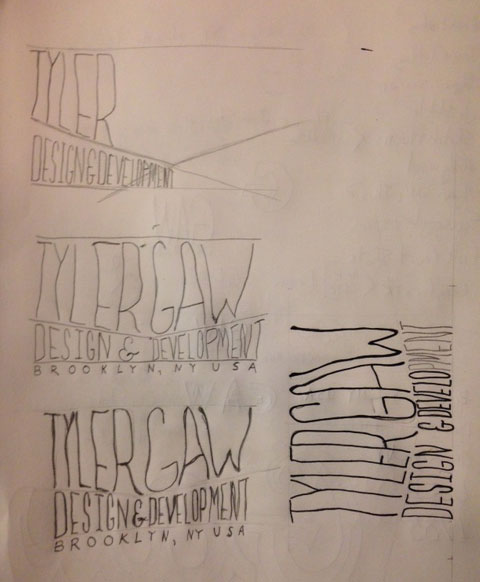 TYLER
DESIGN&DEVELOPMENT
TYLER GAW
DESIGN & DEVELOPMENT
BROOKLYN, NY USA
TYLER GAW
DESIGN & DEVELOPMENT
BROOKLYN, NY USA
TYLER GAW
DESIGN & DEVELOPMENT